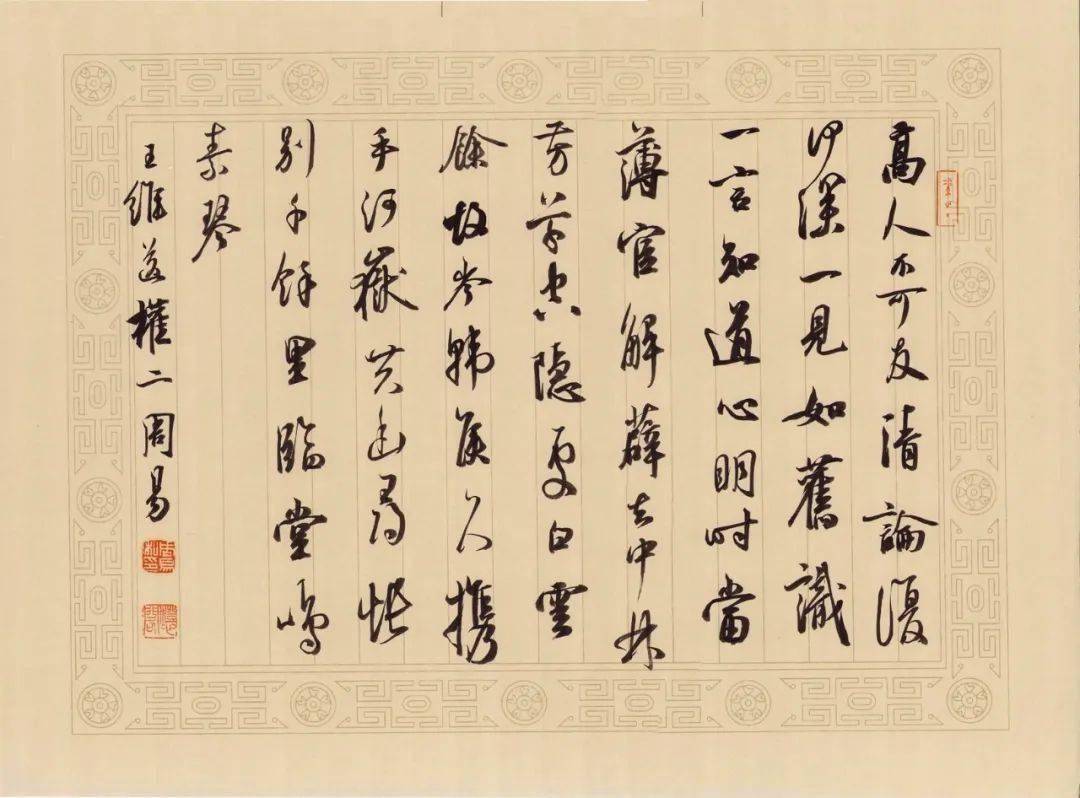 高人不可友清論復
何深一見如舊識
一言知道心明時當
薄宦解薜去中林
芳草空隱處白雲
餘故岑韓侯久攜
手河嶽共幽尋悵
別千餘里臨堂鳴
素琴
王維送權二周易